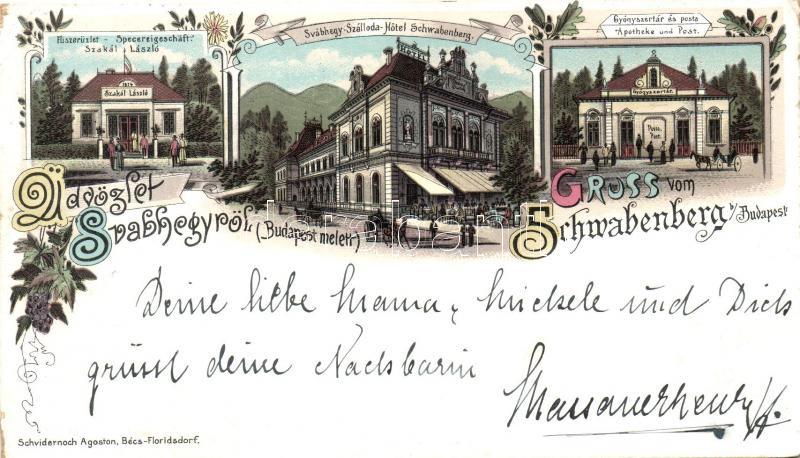 Fűszerüzlet - Specereigeschäft.
Szakál László
Svábhegy-Szálloda-Hôtel Schwabenberg.
Gyógyszertár és posta
Apotheke und Post.
1874
Szakál László
Gyógyszertár.
Posta.
Post.
Üdvözlet
Svábhegyről
(Budapest melett)
Gruss vom
Schwabenberg b/Budapest
Deine liebe Mama, Mickele und Dich
grüsst deine Nachbarin
Schvidernoch Agoston, Bécs-Floridsdorf.